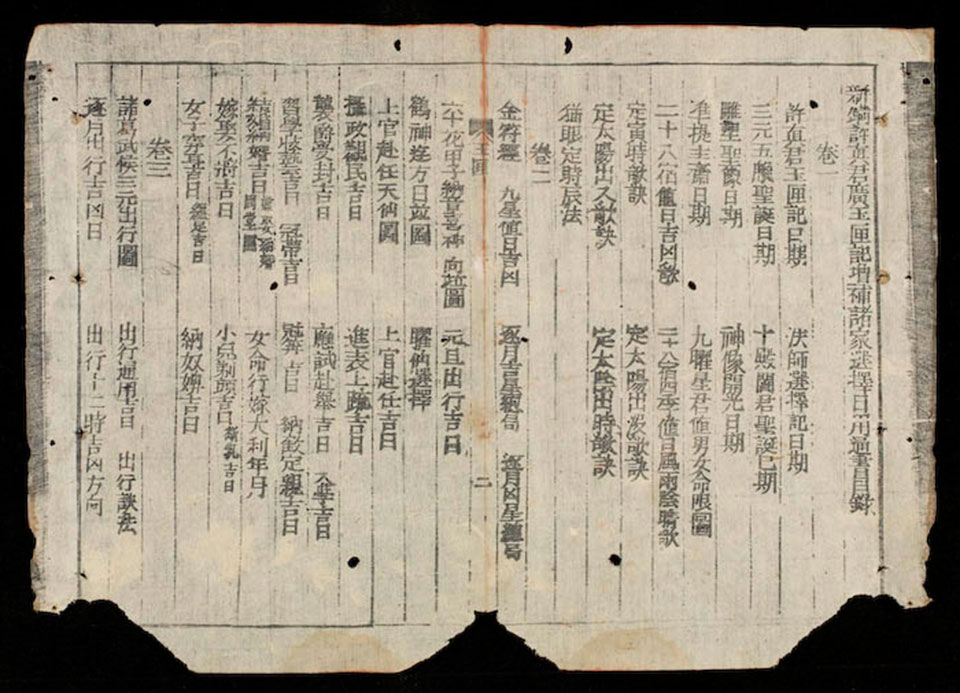 新鐫許真君廣玉匣記增補諸家選擇日用通書目錄
卷一
許真君玉匣記日期 法師選擇記日期
三元五臘聖誕日期 十殿閻君聖誕日期
雕塑聖像日期 神像開光日期
准提主齋日期 九曜星君值男女命限圖
二十八宿值日吉凶歌 二十八宿四季值日風雨陰晴歌
定寅時歌訣 定太陽出沒歌訣
定太陽出入歌訣 定太陰出時歌訣
猫眼定時辰法
卷二
金符經 九星值日吉凶 逐月吉星總局 逐月凶星總局
玉匣
二
六十花甲子納音喜神向並圖 元旦出行吉日
鶴神迄方日並圖 曜仙選擇
上官赴任天仙圖 上官赴任吉日
撫政親民吉日 進表上疏吉日
襲爵受封吉日 應試赴舉吉日 入學吉日
習學收藝吉日 冠帶吉日 冠笄吉日 納敘定親吉日
結婚姻吉日 周堂圖 女命行嫁大利年月
嫁娶不將吉日 小兒剃頭吉日 斷乳吉日
女子穿耳吉日 纏足吉日 納奴婢吉日
卷三
諸葛武侯三元出行圖 出行通用吉日 出行訣法
逐月出行吉凶日 出行十二時吉凶方向